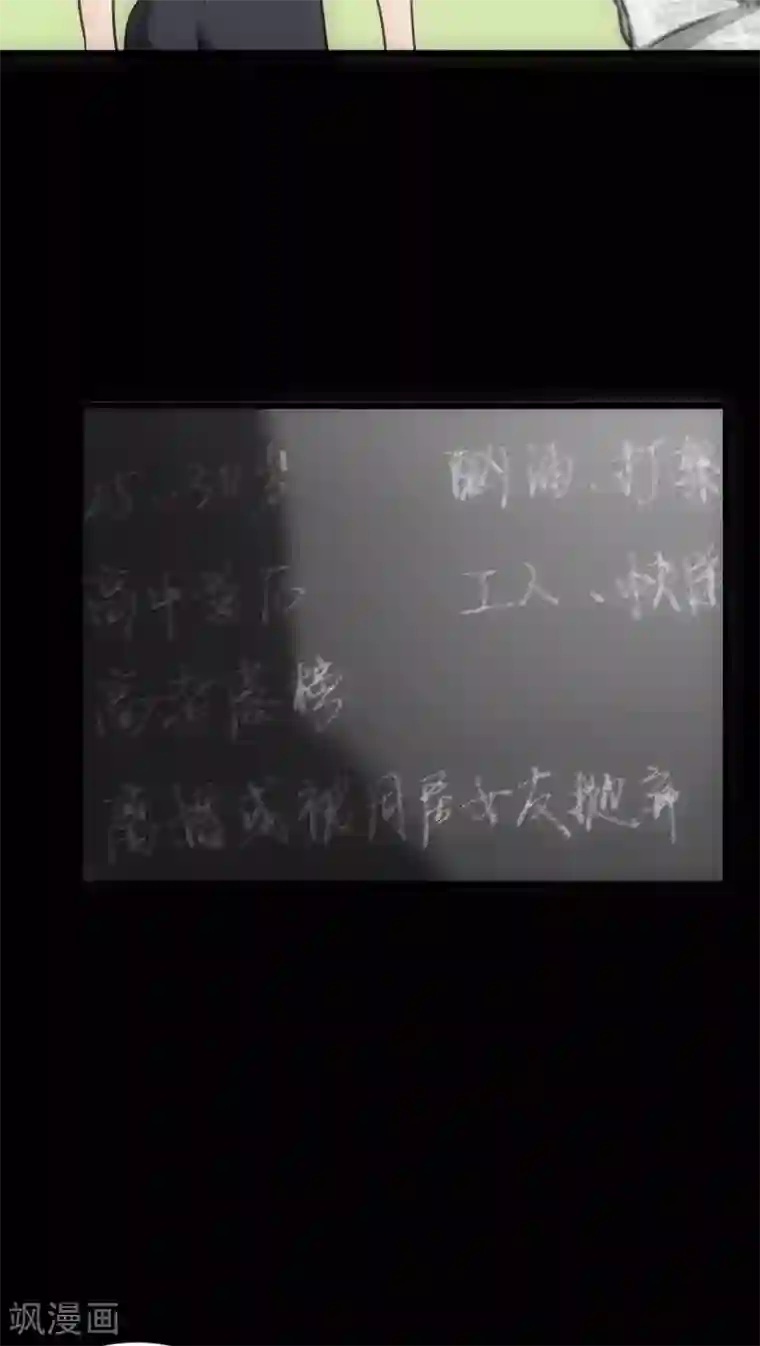 25、30岁 酗酒、打架
高中学历 工人、快递
高考落榜
离婚或被同居女友抛弃
飒漫画